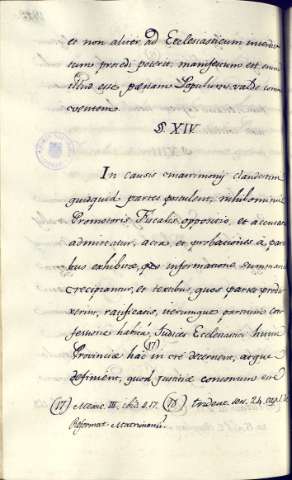 et non aliter ad Ecclesiasticum
tum procedi poterit, manifestum est
esse poenam Sepulturae valde
venientem
§. XIV
In causis matrimonij
quidquid partes postulent, nihilominus
Promotoris Fiscalis oppositio, et accusatio
admittatur, acta, et probationes à
bus exhibitae, per informationem summariam
recipiantur, et testibus, quos partes
xerint, ratificatis, iterumque partium
fessione habita, Judices Ecclesiastici huius
Provinciae hac in re (17) decernent, atque
definient, quod justitiae consonum
(17) Mexic. III. ibid. §. 17. (18) Trident. sess. 24. cap. 1. de
Reformat. Matrimonii.